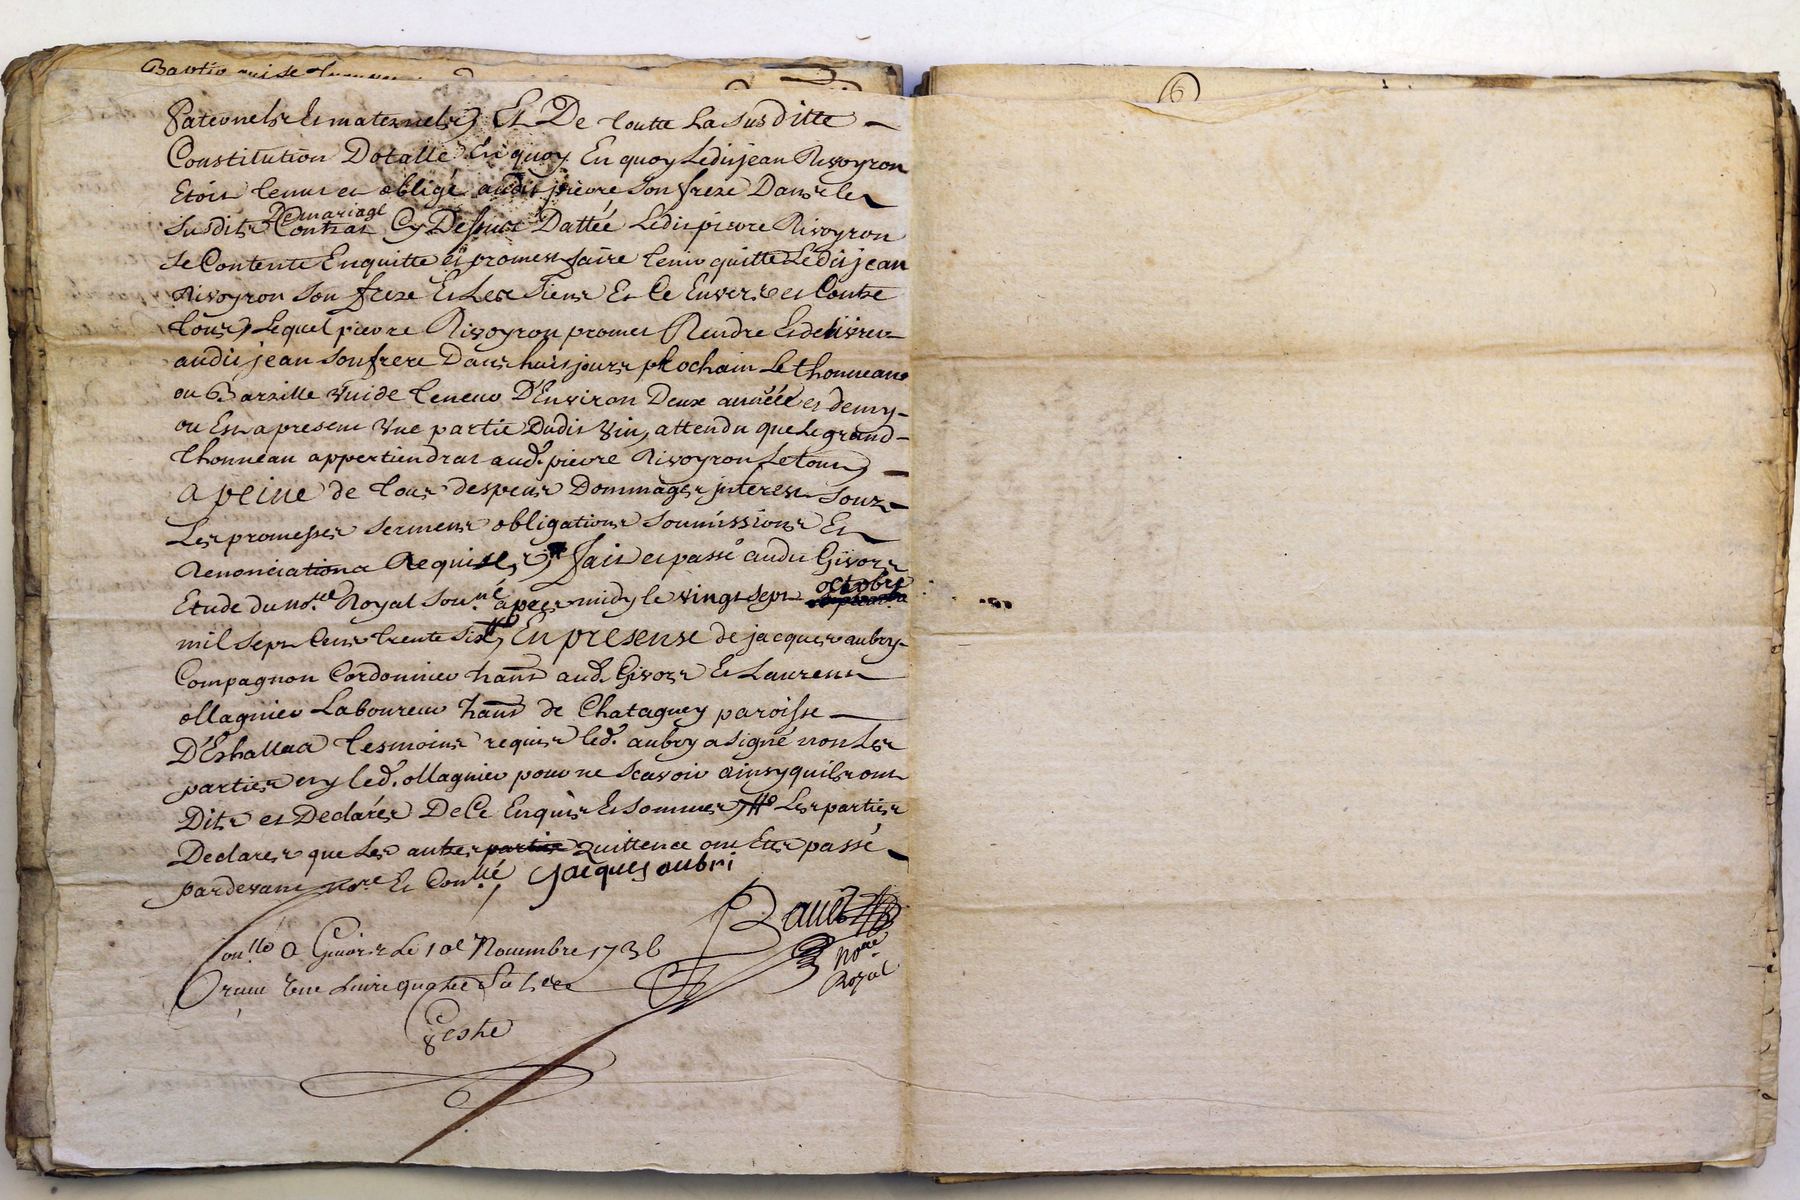 paternels et maternels, Et De toutte La susditte
Constitution Dotalle En quoy En quoy Ledit jean Rivoyron
Etoit tenut et obligé audit pierre son frere Dans les
susdits Contrat De mariage Cy Dessus Dattée Ledit pierre Rivoyron
se Contente En quitte et promet faire tenir quitte Ledit jean
Rivoyron son frere Et Les siens Et Ce Envers et Contre
tous, Lequel pierre Rivoyron promet Rendre Et delivrer
audit jean son frere Dans huit jours prochain Le thonneau
ou Barrille vuide teneur D'Environ Deux annéés et demy
ou Est a present vne partie Dudit vin, attendu que Le grand
thonneau appertiendrat aud. pierre Rivoyron Le tout,
a peine de tous despens Dommages jnterest sous
Les promesses serments obligations soumissions Et
Renonciations Requises, fait et passé audit Givors
Etude du no.re Royal sou.né apres midy le vingt sept octobre
mil sept Cent trente six, En presense de jacques aubry
Compagnon Cordonnier hant aud. Givors Et Laurent
ollagnier Laboureur hant de Chatagney paroisse
D'Eshallaa tesmoins requis led. aubry a signé non Les
parties ny led. ollagnier pour ne scavoir ainsy quils ont
Dits et Declarés De Ce Enquis Et sommes, Les parties
Declares que Les autres quittence ont Ette passé
pardevant no.re Et Con.llé, Jacques aubri
Bauet
No.re
Royal
Con.llé a Givors Le 10e Nouembre 1736
Receu vne Liure quatre Sols